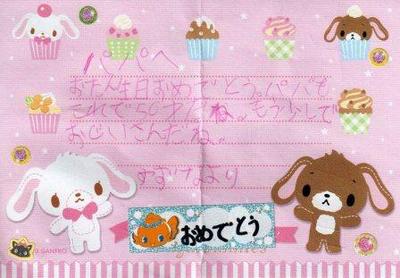 パパへ
おたん生日おめでとう。パパも
これで50才だね。もう少しで
おじいさんだね。
より
おめでとう
SANRIO